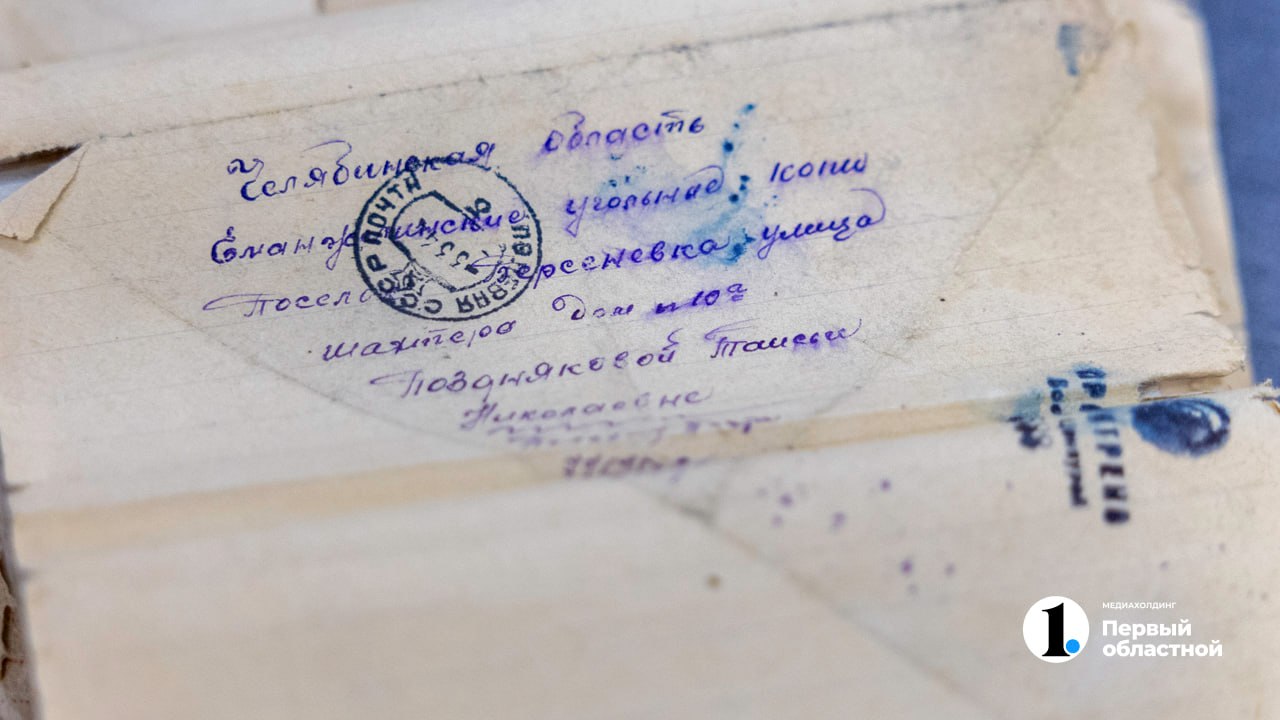 Челябинская область
Еманжелинские угольные копи
Посело Херсоневка улица
шахтера Дом № 10а
Поздняковой Таисьи
Николаовне
СССР ПОЧТА ПОЛЕВАЯ
ПРОСМОТРЕНО
Военцензурой
МЕДИАХОЛДИНГ
1.
Первый
областной